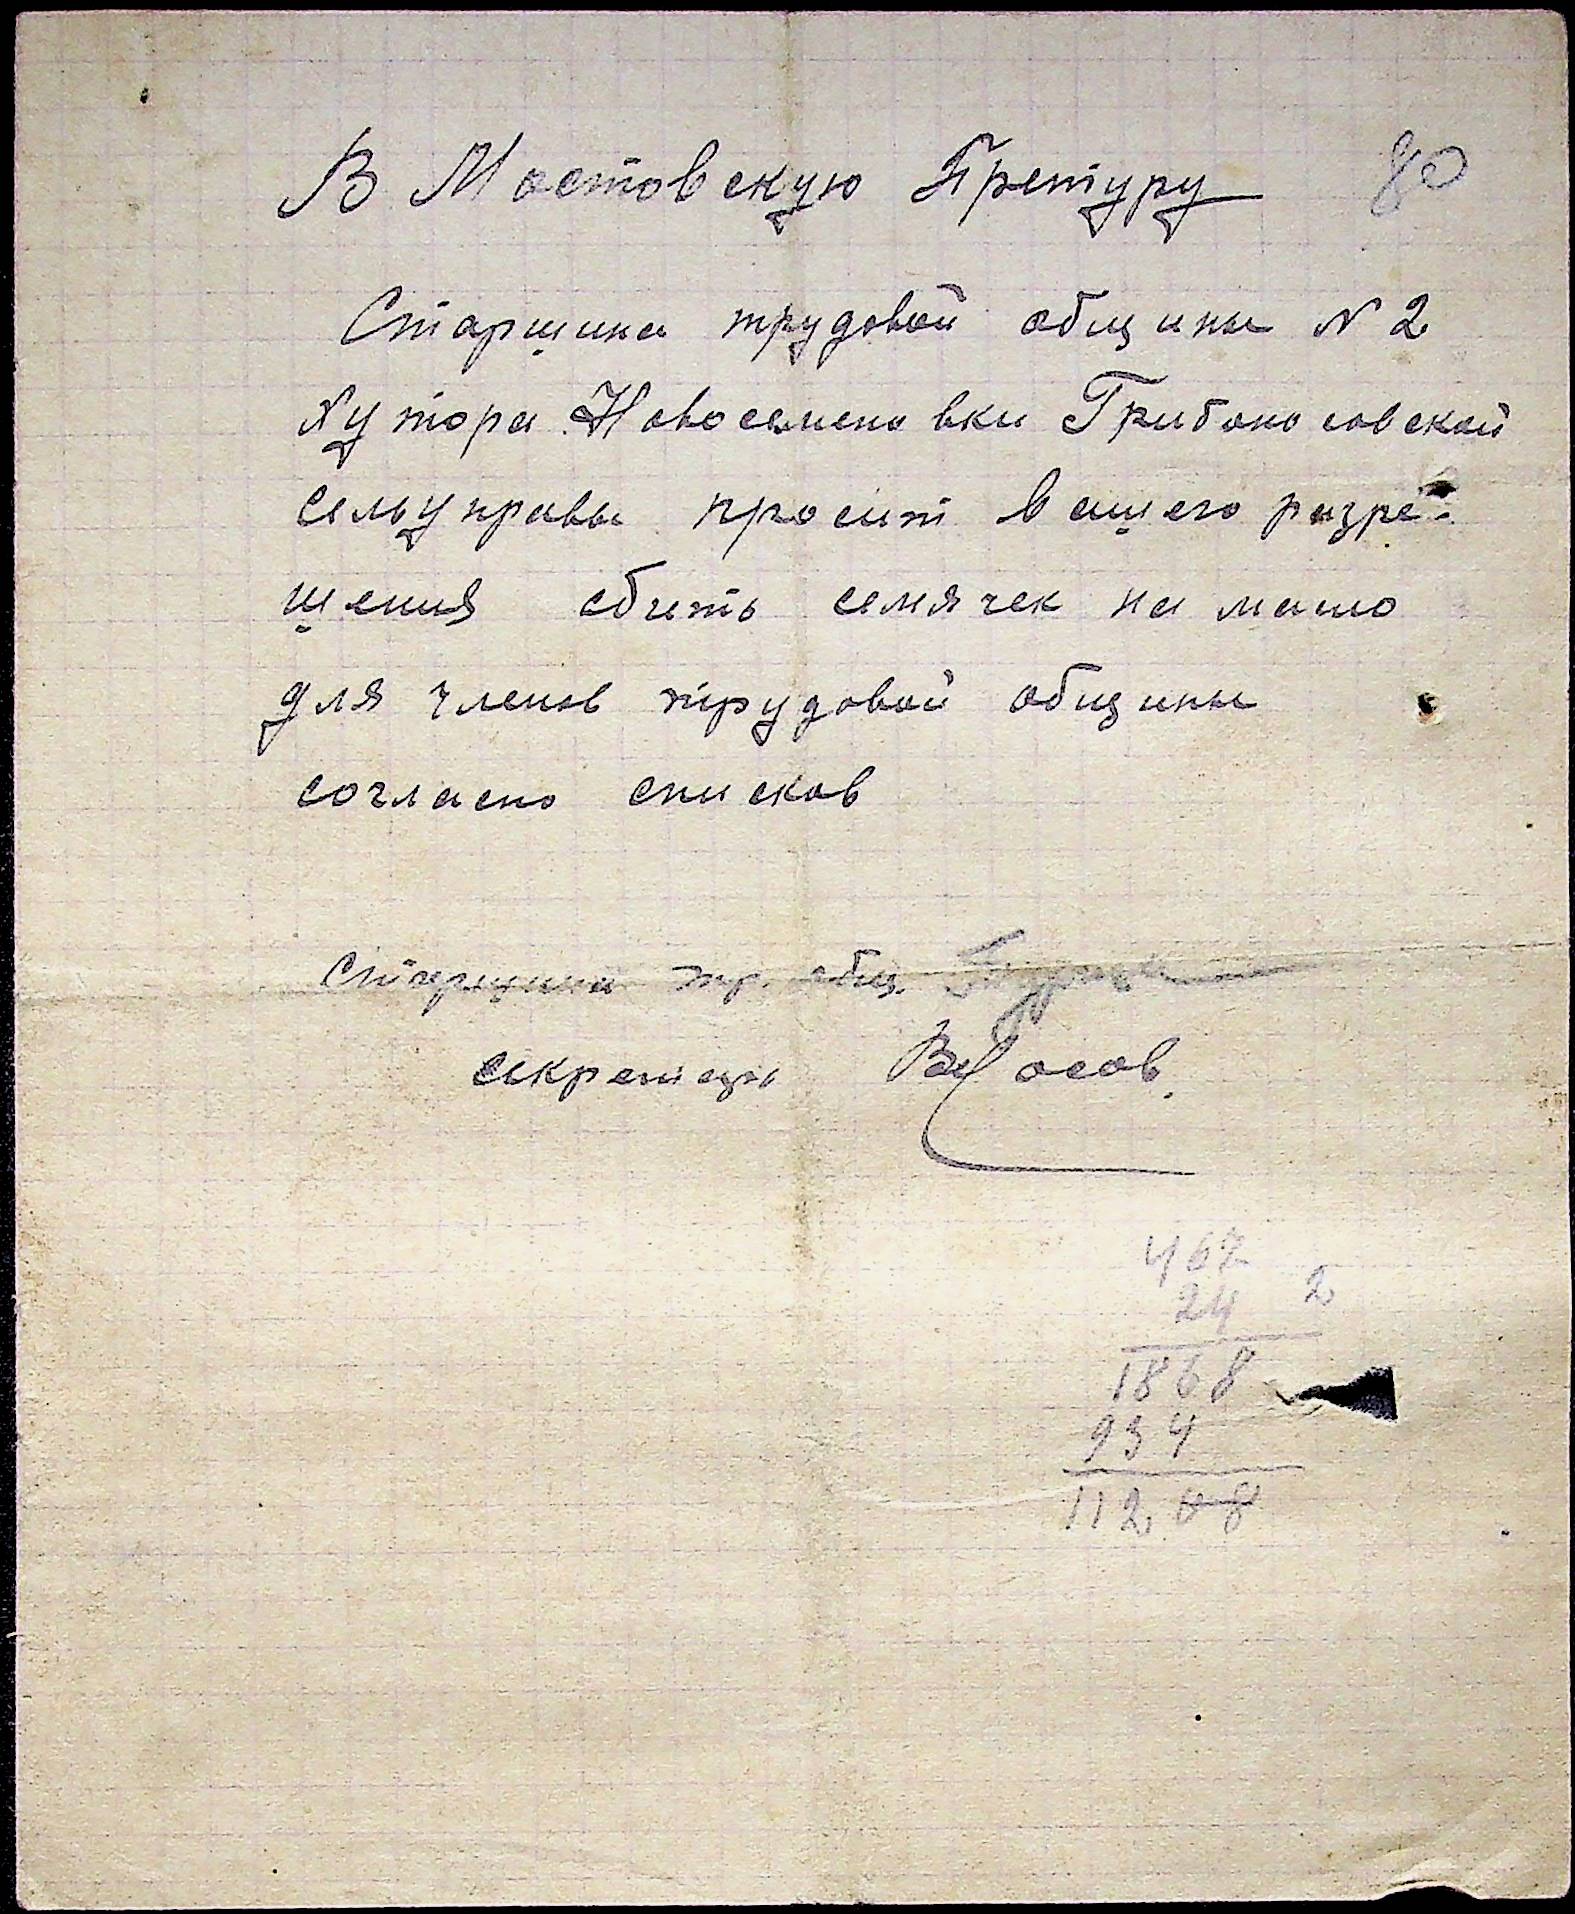 В Мостовскую Претуру 80
Старшина трудовой общины N 2
Хутора Новосеменовки Грибоносовской
сельуправы просит вашего разре-
шения сбить семячек на масло
для членов трудовой общины
согласно списков
Старшина тр. общ.
секретарь Власов.
467
24 2
1868
934
11208